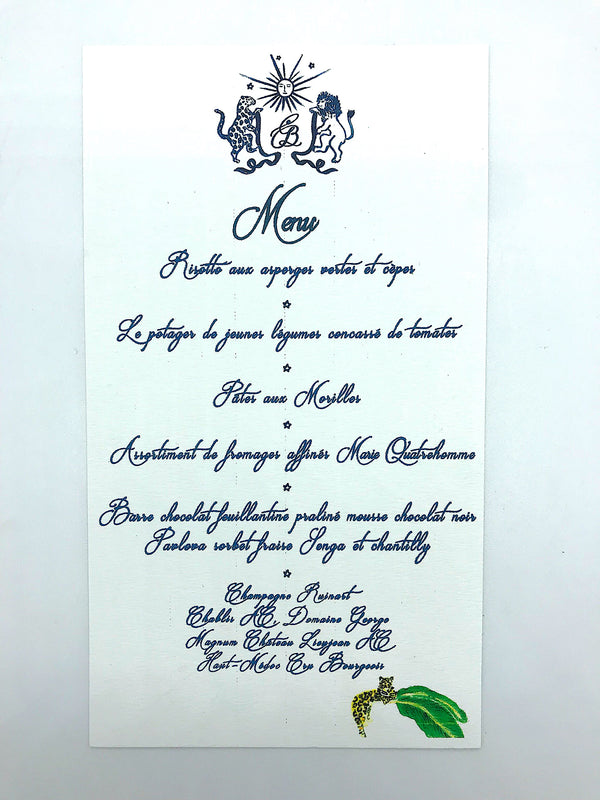 CB
Menu
Risotto aux asperges vertes et cèpes
Le potager de jeunes légumes concassé de tomates
Pâtes aux Morilles
Assortiment de fromages affinés Marie Quatrehomme
Barre chocolat feuillantine praliné mousse chocolat noir
Pavlova sorbet fraise Senga et chantilly
Champagne Ruinart
Chablis AC, Domaine George
Magnum Château Lieujean AC
Haut-Médoc Cru Bourgeois